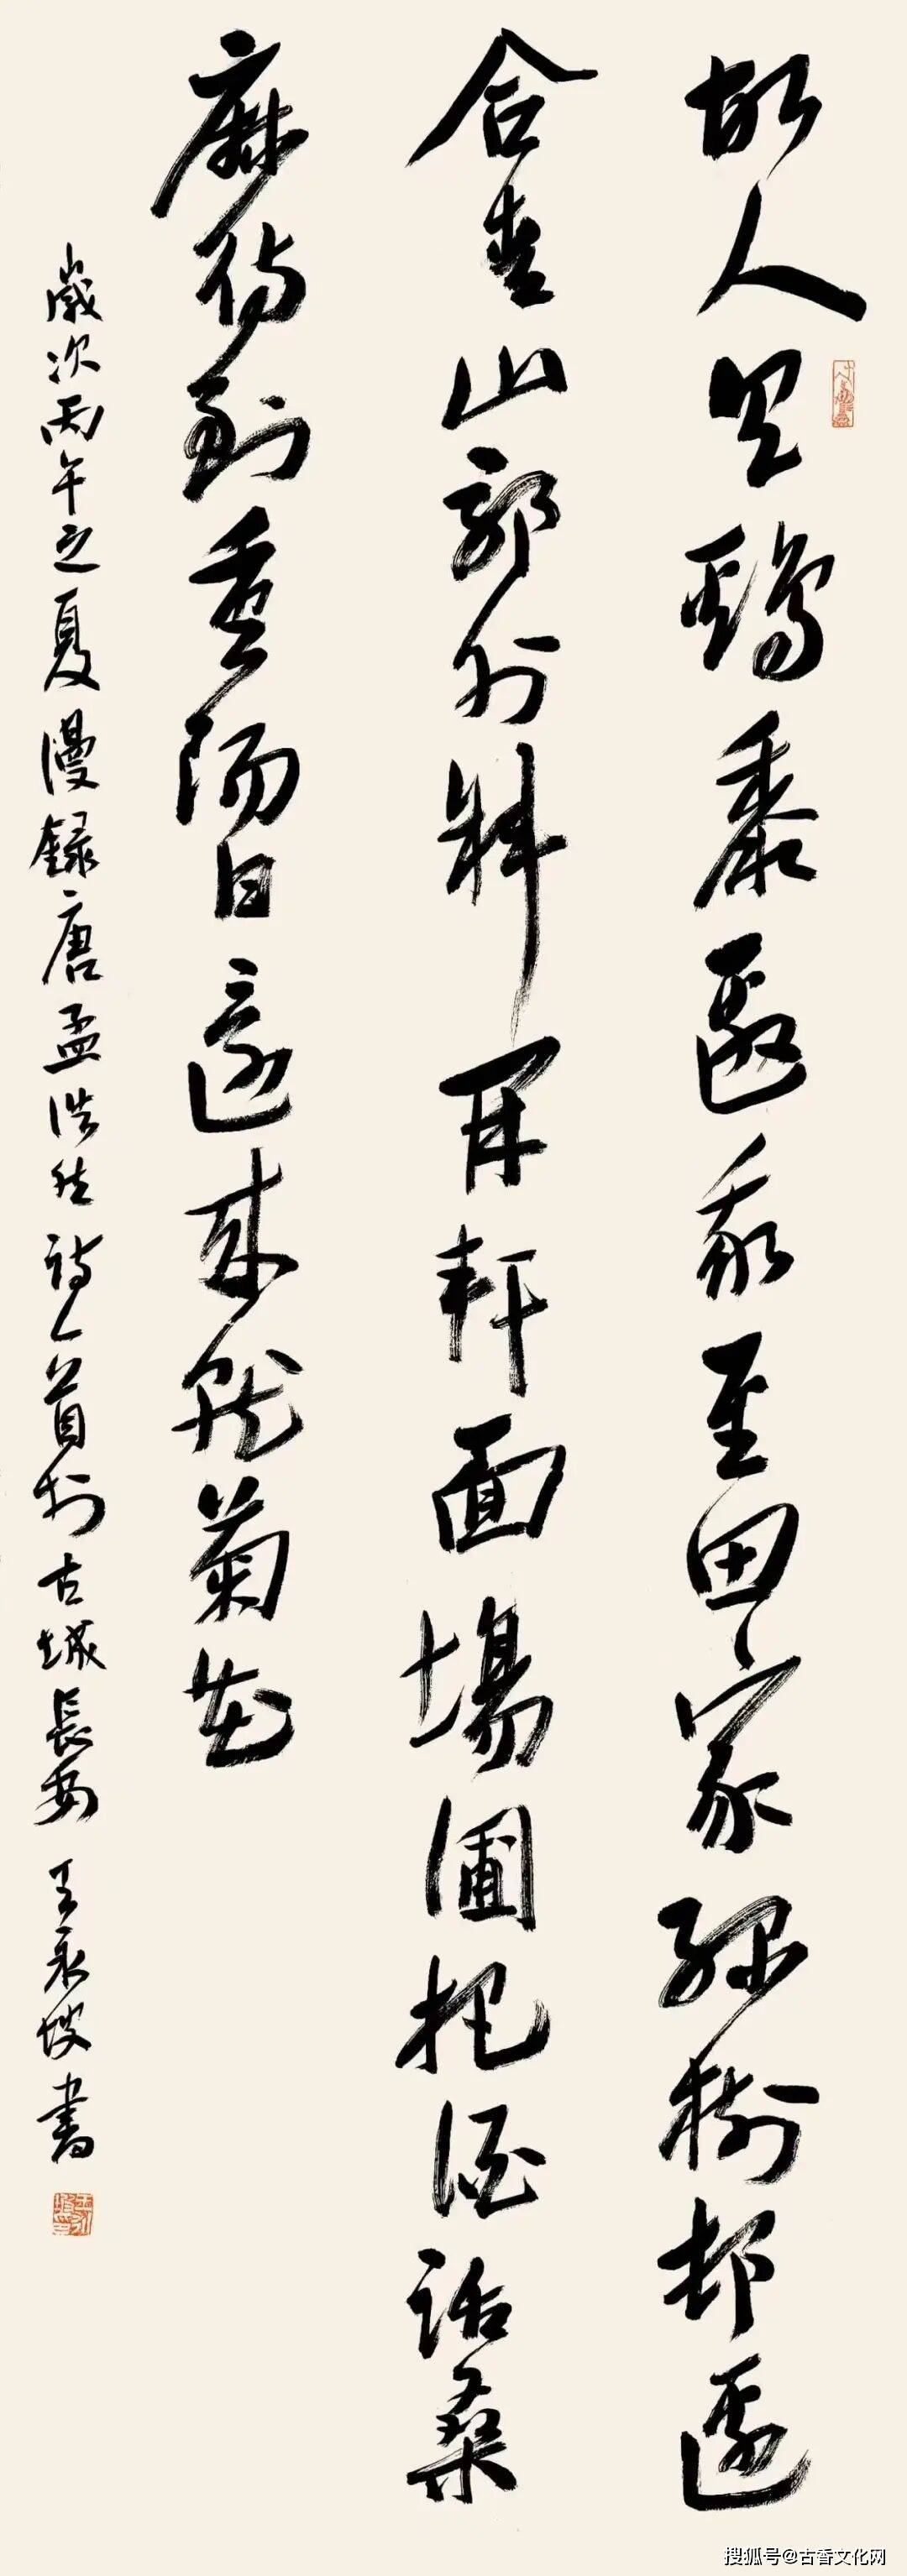 故人具鷄黍邀我至田家綠樹邨邊
合青山郭外斜開軒面場圃把酒話桑
麻待到重陽日還來就菊花
歲次丙午之夏漫錄唐孟浩然詩一首於古城長安王永坡書
搜狐号@古香文化网